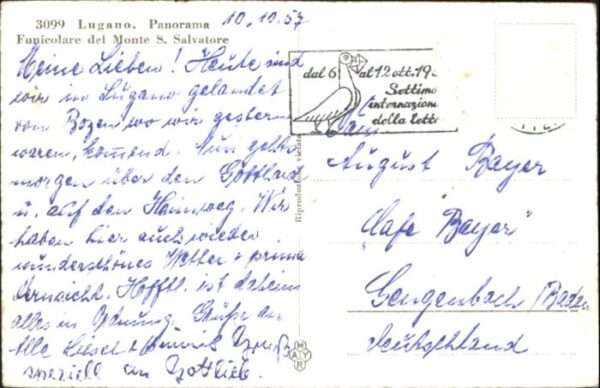 3099 Lugano. Panorama
Funicolare del Monte S. Salvatore
10.10.57
Meine Lieben! Heute sind
wir in Lugano gelandet
von Bozen wo wir gestern
waren, kommend. Nun gehts
morgen über den Gotthard
u. auf den Heimweg. Wir
haben hier auch wieder
wunderschönes Wetter + prima
Fernsicht. Hofftl. ist daheim
alles in Ordnung. Grüße an
Alle Liesel +
speziell an Gottlieb.
dal 6 al 12 ott. 19
Settima
internazion
della lette
Riproduzione vietat
August Bayer
Cafe "Bayer"
Gengenbach/Baden
Deutschland